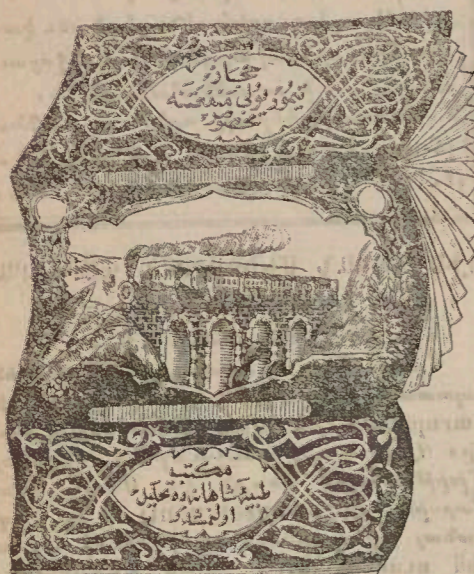 حجاز
تيمور يولى منفعتنه
مخصوص
مكتب
طبيهٔ شاهانه ده تحليل
اولنمشدر